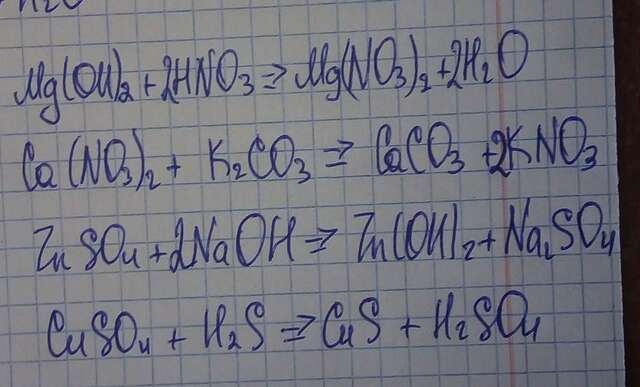 H2O
Mg(OH)2 + 2HNO3 => Mg(NO3)2 + 2H2O
Ca(NO3)2 + K2CO3 => CaCO3 + 2KNO3
ZnSO4 + 2NaOH => Zn(OH)2 + Na2SO4
CuSO4 + H2S => CuS + H2SO4